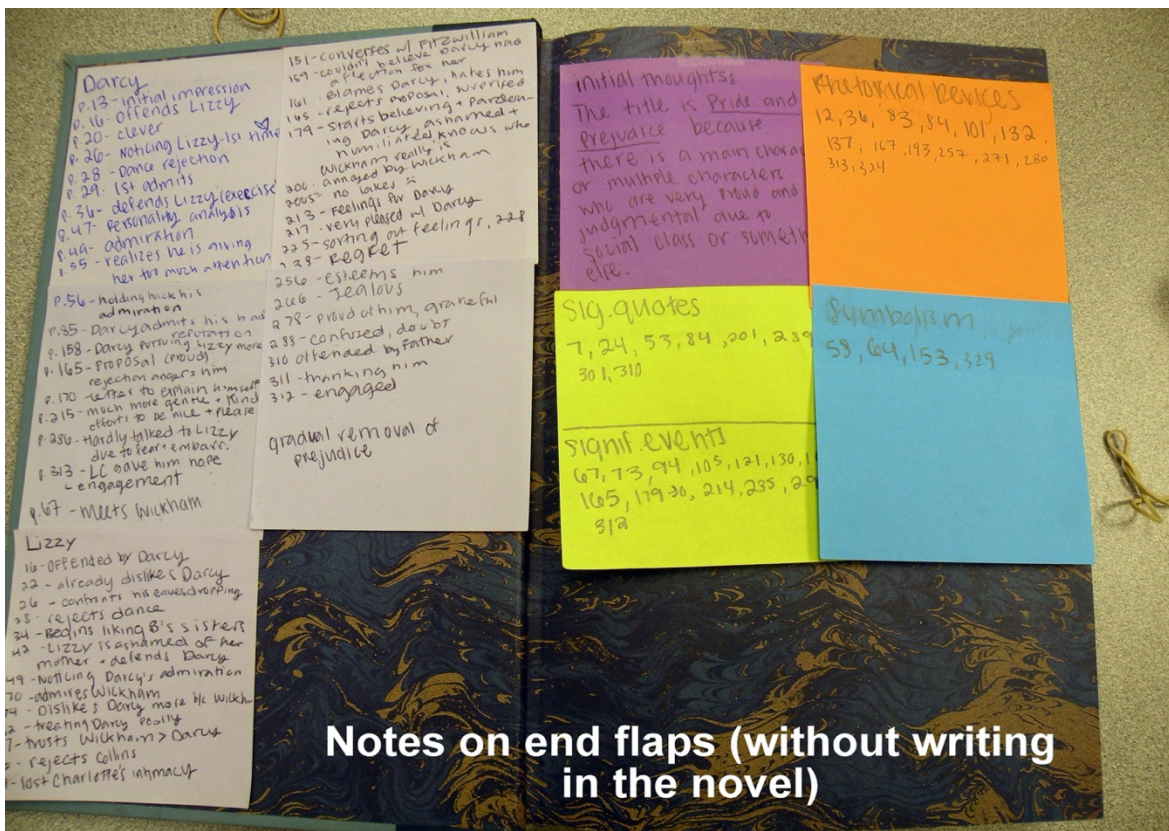 Darcy
p.13 - initial impression
p.16 - offends Lizzy
p.20 - clever
p.26 - Noticing Lizzy-1st time
p.28 - Dance rejection
p.29. 1st admits
p.36 - defends Lizzy (exercise
p.47 - personality analysis
p.49 - admiration
p.55 - realizes he is giving
her too much attention
p.56 - holding back his
admiration
p.85 - Darcy admits his bad
reputation
p.158 - Darcy pursuing Lizzy more
p.165 - Proposal (proud)
rejection angers him
p.170 - letter to explain himself
p.215 - much more gentle + kind
efforts to be nice + please
p.286 - Hardly talked to Lizzy
due to fear + embarr.
p.313 - LC gave him hope
engagement
p.67 - meets Wickham
Lizzy
16 - offended by Darcy
22 - already dislikes Darcy
26 - confronts his eavesdropping
28 - rejects dance
34 - Begins liking B's sisters
42 - Lizzy is ashamed of her
mother + defends Darcy
49 - Noticing Darcy's admiration
70 - admires Wickham
74 - Dislikes Darcy more b/c Wickh
- treating Darcy poorly
- trusts Wickham > Darcy
- rejects Collins
- lost Charlotte's intimacy
151 - converses w/ Fitzwilliam
159 - couldn't believe Darcy has
affection for her
161 - Blames Darcy, hates him
165 - rejects proposal, surprised
179 - starts believing + pardon-
ing Darcy, ashamed +
humiliated, knows who
Wickham really is
200 - annoyed by Wickham
205 - no lakes
213 - feelings for Darcy
217 - very pleased w/ Darcy
225 - sorting out feelings, 228
- Regret
256 - esteems him
266 - Jealous
278 - proud of him, grateful
288 - confused, doubt
310 offended by Father
311 - thanking him
312 - engaged
gradual removal of
prejudice
initial thoughts:
The title is Pride and
Prejudice because
there is a main charac
or multiple characters
who are very proud and
judgmental due to
social class or someth
else.
Rhetorical Devices
12, 36, 83, 84, 101, 132,
137, 167, 193, 257, 271, 280
313, 324
Sig. quotes
7, 24, 53, 84, 201, 239
301, 310
signif. events
67, 73, 94, 105, 121, 130, 1
165, 179-80, 214, 235, 29
312
Symbolism
58, 64, 153, 329
Notes on end flaps (without writing
in the novel)